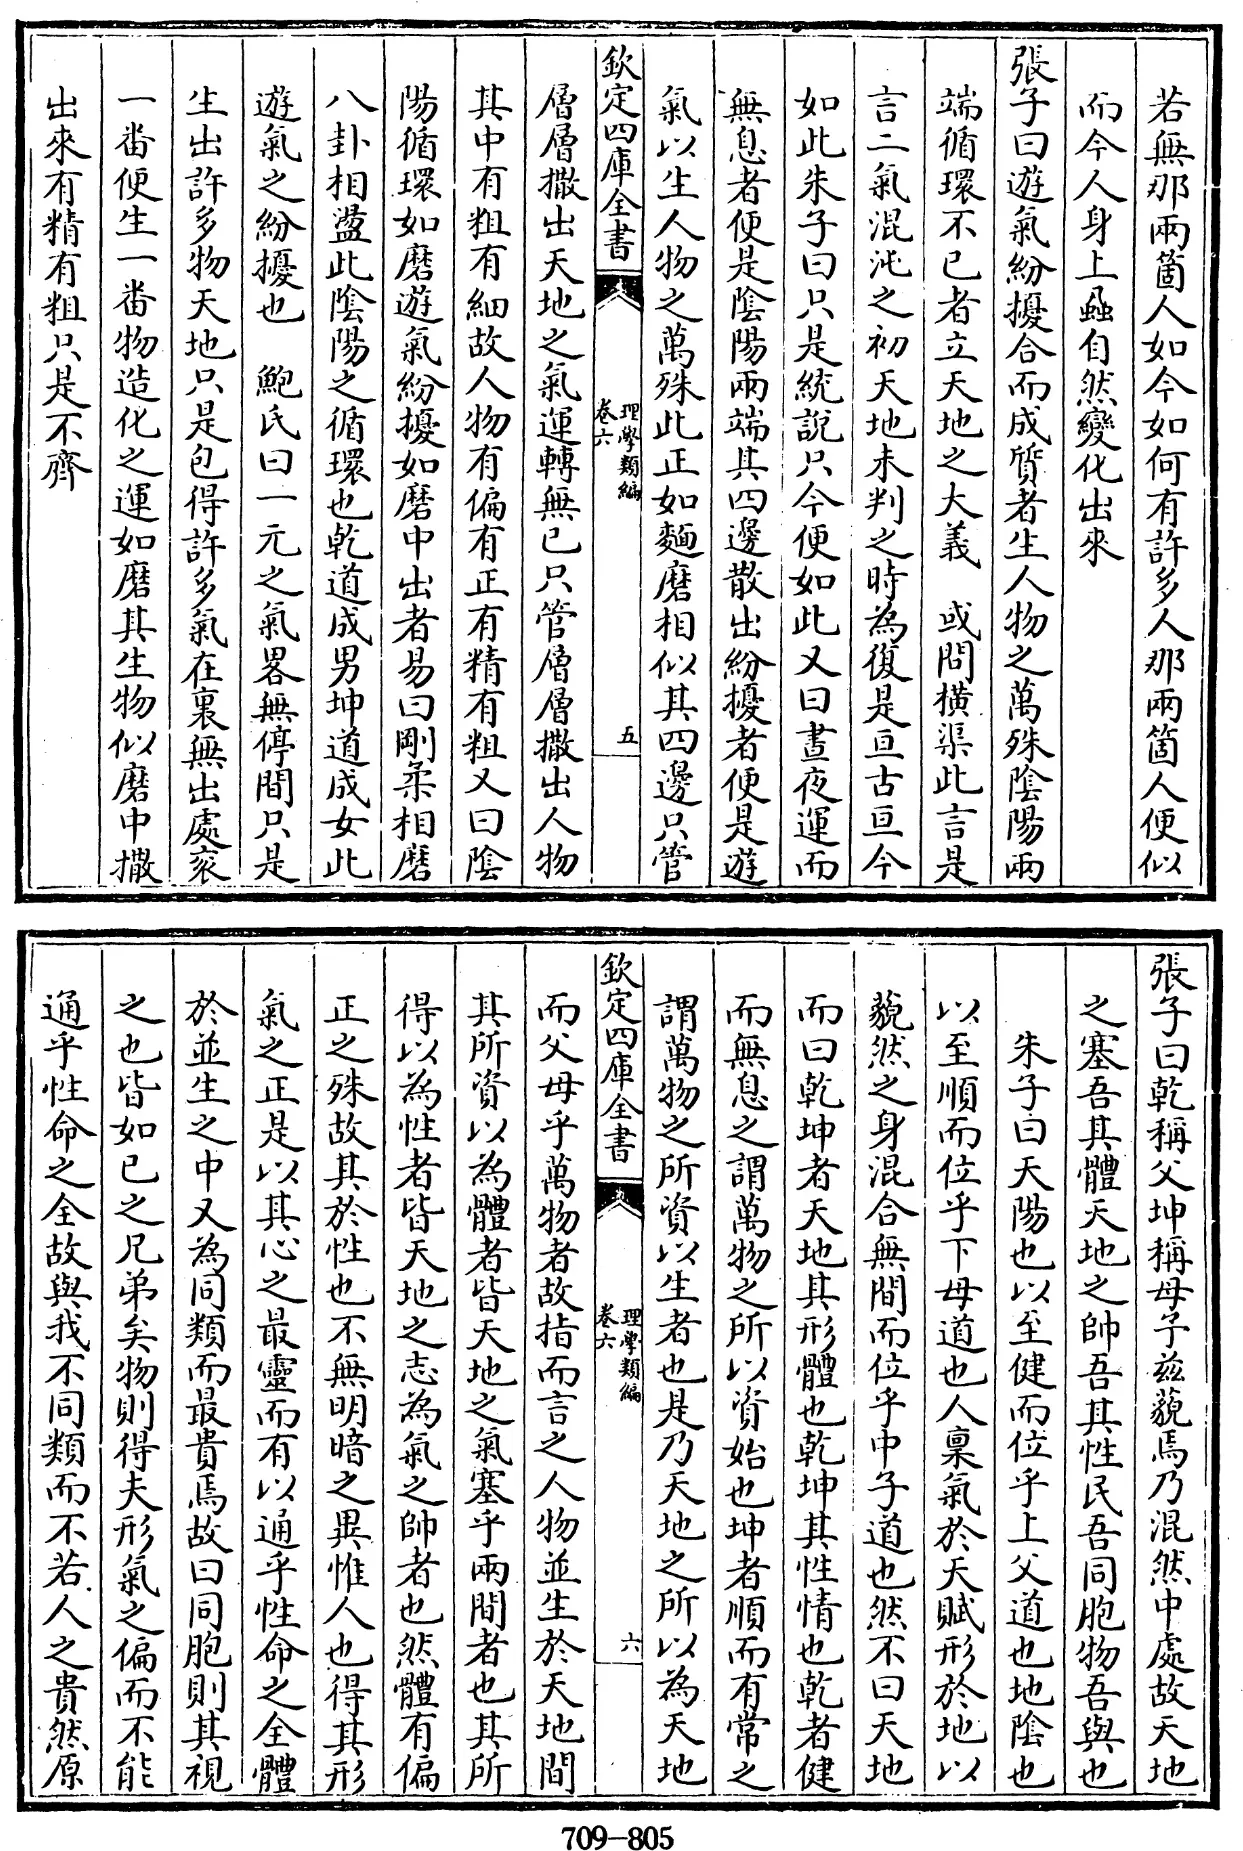 若無那兩箇人如今如何有許多人那兩箇人便似
而今人身上蝨自然變化出來
張子曰遊氣紛擾合而成質者生人物之萬殊陰陽兩
端循環不已者立天地之大義　或問橫渠此言是
言二氣混沌之初天地未判之時為復是亘古亘今
如此朱子曰只是統說只今便如此又曰晝夜運而
無息者便是陰陽兩端其四邊散出紛擾者便是遊
氣以生人物之萬殊此正如麵磨相似其四邊只管
欽定四庫全書
理學類編
卷六
五
層層撒出天地之氣運轉無已只管層層撒出人物
其中有粗有細故人物有偏有正有精有粗又曰陰
陽循環如磨遊氣紛擾如磨中出者易曰剛柔相磨
八卦相盪此陰陽之循環也乾道成男坤道成女此
遊氣之紛擾也　鮑氏曰一元之氣畧無停間只是
生出許多物天地只是包得許多氣在裏無出處衮
一番便生一番物造化之運如磨其生物似磨中撒
出來有精有粗只是不齊
張子曰乾稱父坤稱母予茲藐焉乃混然中處故天地
之塞吾其體天地之帥吾其性民吾同胞物吾與也
朱子曰天陽也以至健而位乎上父道也地陰也
以至順而位乎下母道也人稟氣於天賦形於地以
藐然之身混合無間而位乎中子道也然不曰天地
而曰乾坤者天地其形體也乾坤其性情也乾者健
而無息之謂萬物之所以資始也坤者順而有常之
謂萬物之所資以生者也是乃天地之所以為天地
欽定四庫全書
理學類編
卷六
六
而父母乎萬物者故指而言之人物並生於天地間
其所資以為體者皆天地之氣塞乎兩間者也其所
得以為性者皆天地之志為氣之帥者也然體有偏
正之殊故其於性也不無明暗之異惟人也得其形
氣之正是以其心之最靈而有以通乎性命之全體
於並生之中又為同類而最貴焉故曰同胞則其視
之也皆如已之兄弟矣物則得夫形氣之偏而不能
通乎性命之全故與我不同類而不若人之貴然原
709-805